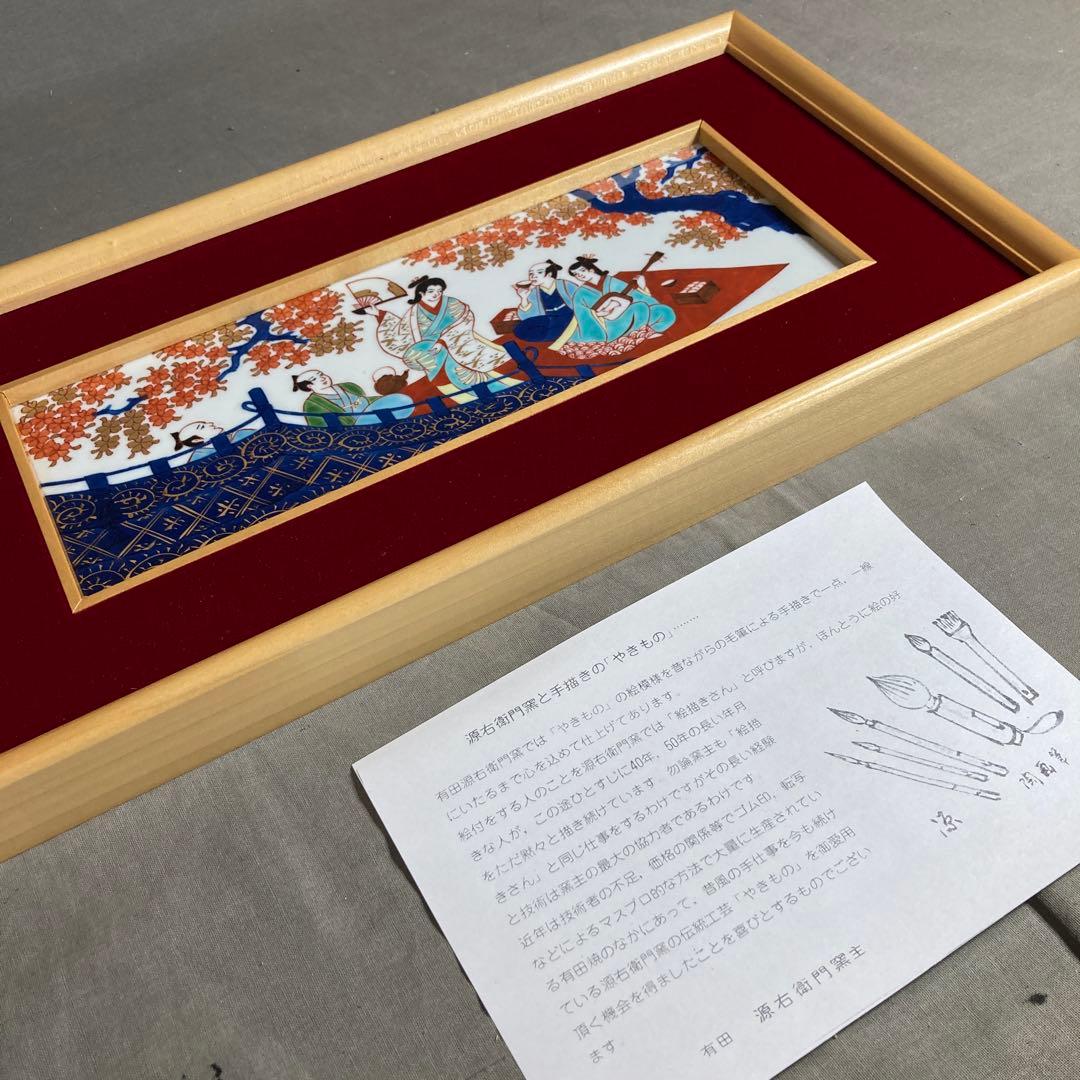 源右衛門窯と手描きの「やきもの」………
有田源右衛門窯では「やきもの」の絵模様を昔ながらの毛筆による手描きで一点，一線
にいたるまで心を込めて仕上げてあります．
絵付をする人のことを源右衛門窯では「絵描きさん」と呼びますが，ほんとうに絵の好
きな人が，この途ひとすじに40年，50年の長い年月
をただ黙々と描き続けています．勿論窯主も「絵描
きさん」と同じ仕事をするわけですがその長い経験
と技術は窯主の最大の協力者であるわけです．
近年は技術者の不足，価格の関係等でゴム印，転写
などによるマスプロ的な方法で大量に生産されてい
る有田焼のなかにあって，昔風の手仕事を今も続け
ている源右衛門窯の伝統工芸「やきもの」を御愛用
頂く機会を得ましたことを喜びとするものでござい
ます．
有田　源右衛門窯主